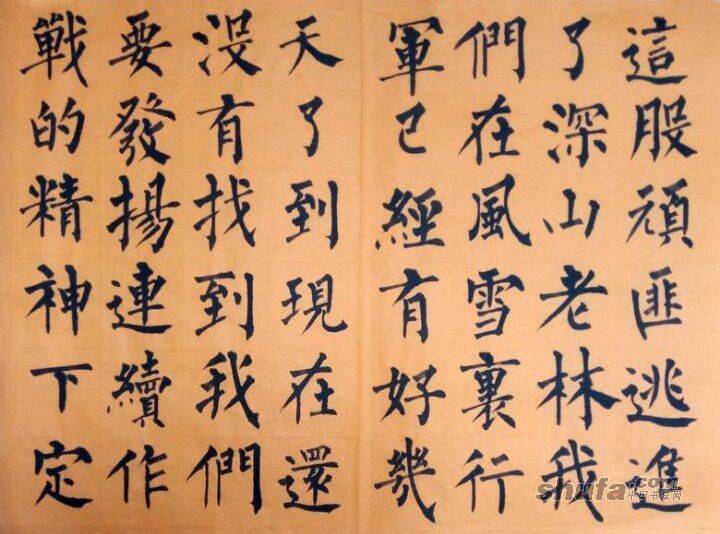 這股頑匪逃進
了深山老林我
們在風雪裏行
軍已經有好幾
天了到現在還
没有找到我們
要發揚連續作
戰的精神下定
shufa.com
中国书法网